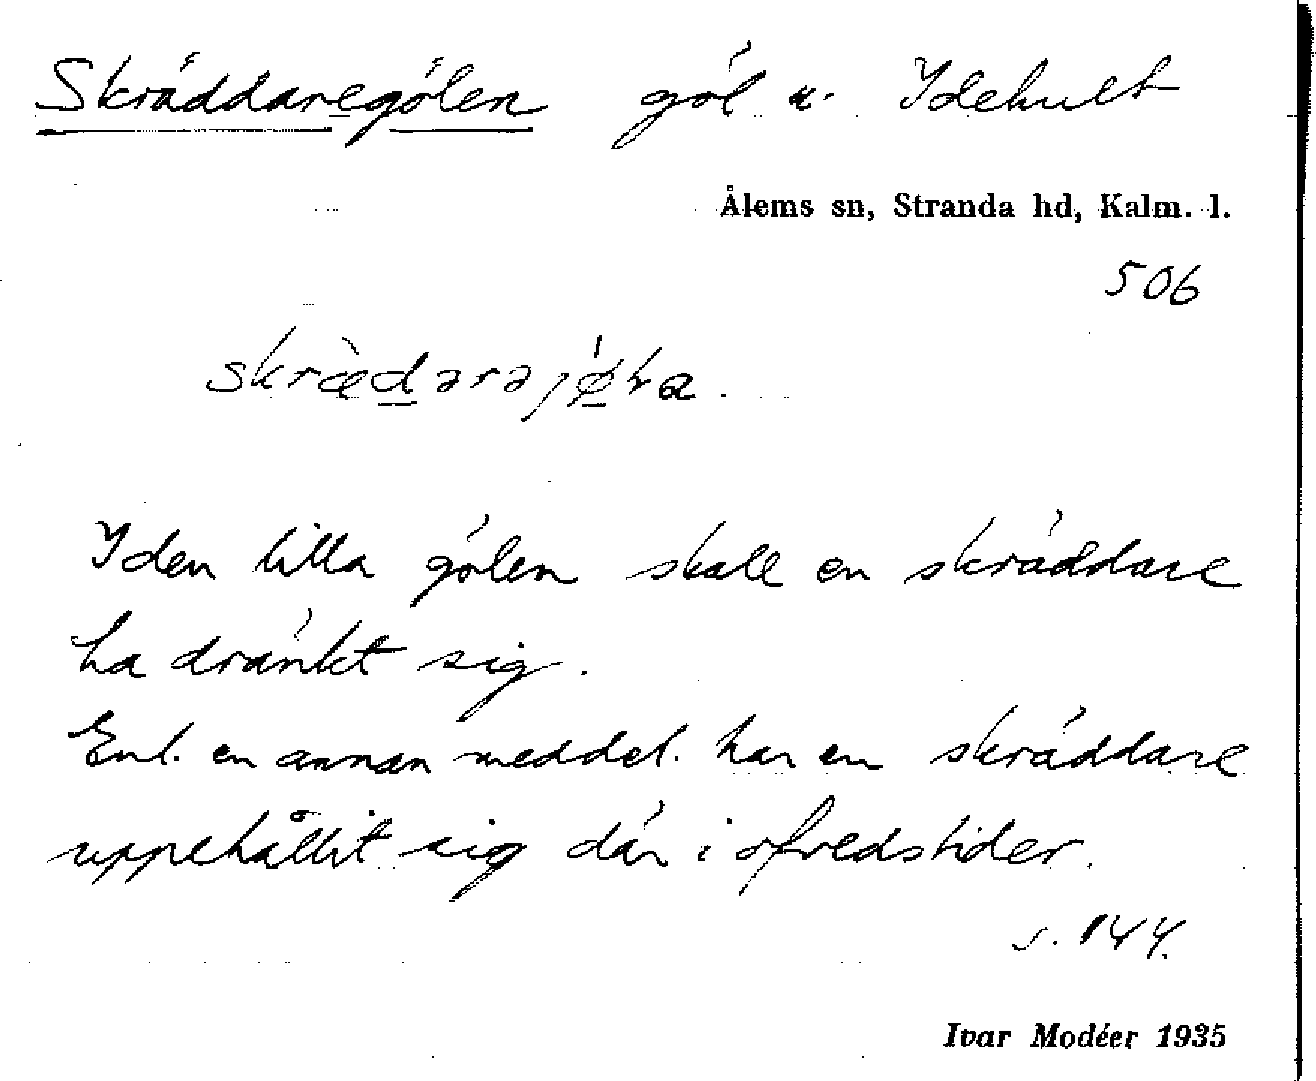 Skräddaregölen göl u. Idehult
Ålems sn, Stranda hd, Kalm. l.
506
I den lilla gölen skall en skräddare
ha dränkt sig.
Enl. en annan meddel. har en skräddare
uppehållit sig där i ofredstider.
s. 144.
Ivar Modéer 1935